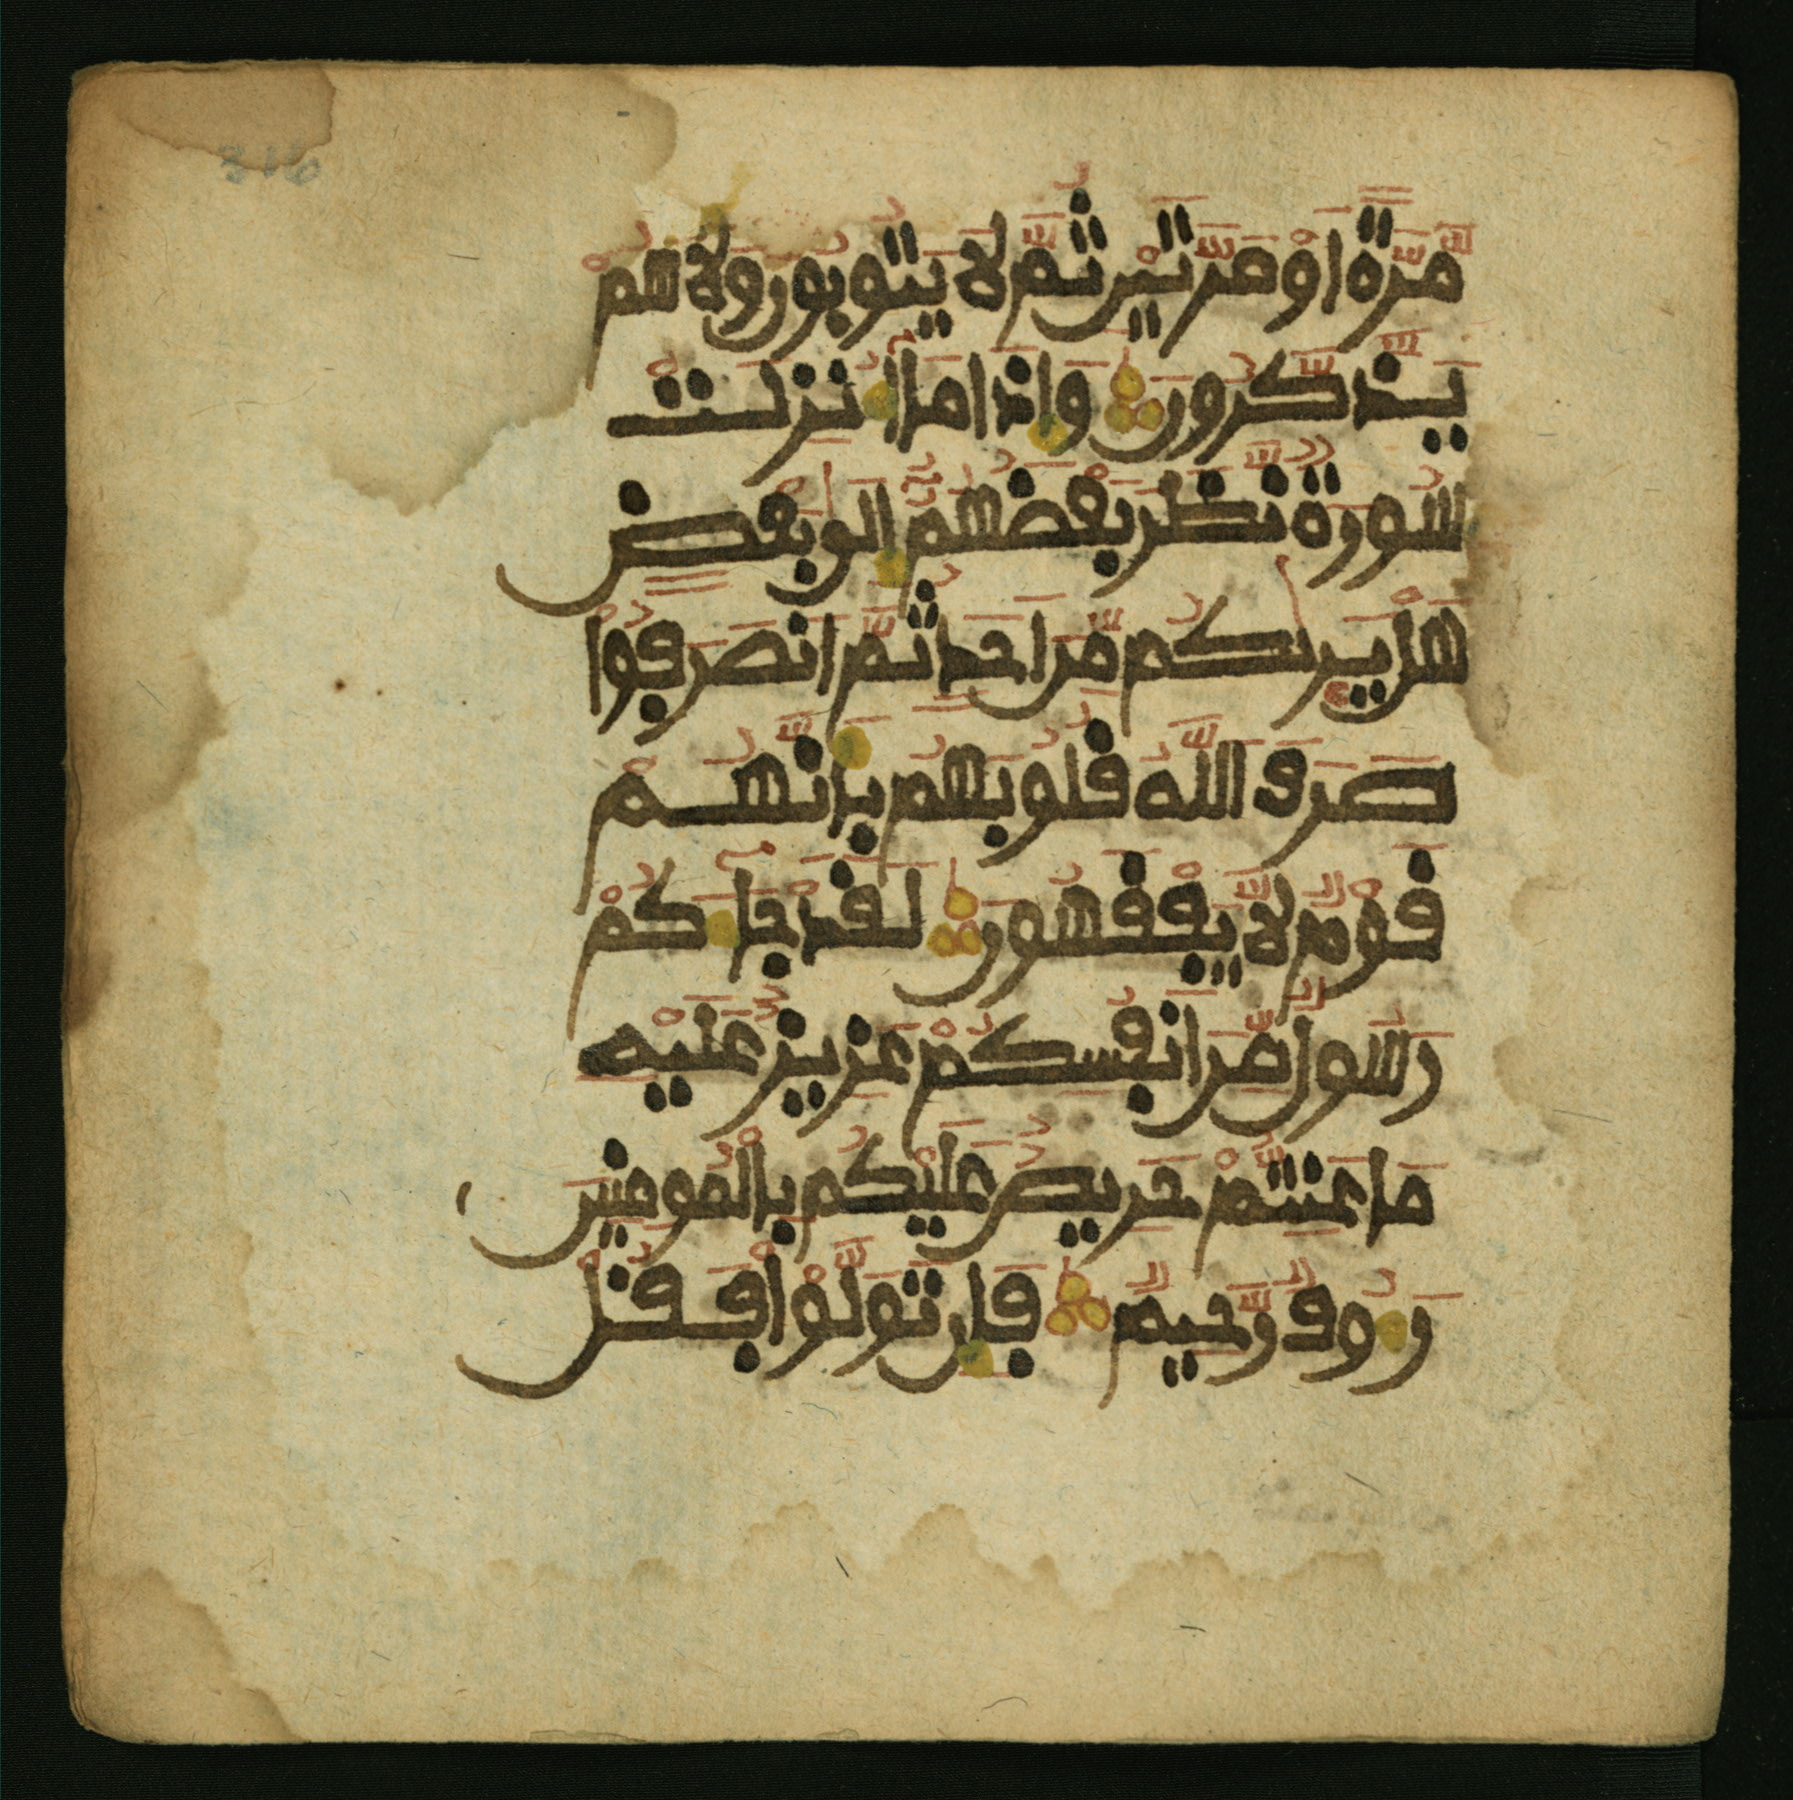 316
مَّرَّةً اَوْ مَرَّتَيْنِ ثُمَّ لَا يَتُوبُونَ وَلَا هُمْ
يَذَّكَّرُونَ وَإِذَا مَا أُنزِلَتْ
سُورَةٌ نَّظَرَ بَعْضُهُمُ إِلَىٰ بَعْضٍ
هَلْ يَرٰىكُم مِّنَ اَحَدٍ ثُمَّ اَنصَرَفُوا
صَرَفَ اَللَّهُ قُلُوبَهُم بِأَنَّهُمْ
قَوْمٌ لَّا يَفْقَهُونَ لَقَدْ جَاءَكُمْ
رَسُولٌ مِّنَ اَنفُسِكُمْ عَزِيزٌ عَلَيْهِ
مَا عَنِتُّمْ حَرِيصٌ عَلَيْكُم بِالْمُومِنِينَ
رَءُوفٌ رَّحِيمٌ فَإِن تَوَلَّوْا فَقُلْ